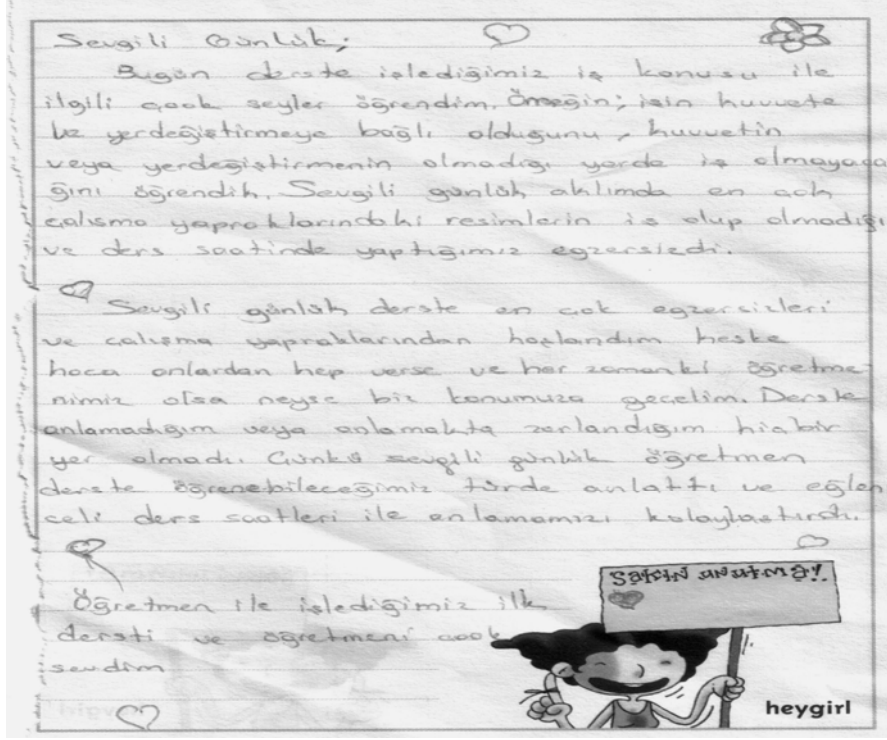 Sevgili Günlük;
Bugün derste işlediğimiz iş konusu ile
ilgili çook şeyler öğrendim. Örneğin; işin kuvvete
ve yerdeğiştirmeye bağlı olduğunu, kuvvetin
veya yerdeğiştirmenin olmadığı yerde iş olmayaca
ğını öğrendik. Sevgili günlük aklımda en çok
çalışma yapraklarındaki resimlerin iş olup olmadığı
ve ders saatinde yaptığımız egzersizdi.
Sevgili günlük derste en çok egzersizleri
ve çalışma yapraklarından hoşlandım keşke
hoca onlardan hep verse ve her zamanki öğretme
nimiz olsa neyse biz konumuza geçelim. Derste
anlamadığım veya anlamakta zorlandığım hiçbir
yer olmadı. Çünkü sevgili günlük öğretmen
derste öğrenebileceğimiz türde anlattı ve eğlen
celi ders saatleri ile anlamamızı kolaylaştırdı.
SaKıN uNutMa!
Öğretmen ile işlediğimiz ilk
dersti ve öğretmeni çook
sevdim
heygirl